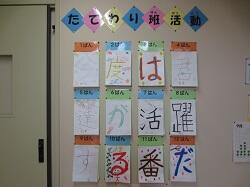 たてわり班活動
1ぱん 2はん 3ぱん 4はん
今 度 は 君
5はん 6ぱん 7はん 8ぱん
達 が 活 躍
9はん 10ぱん 11ぱん 12はん
す る 番 だ